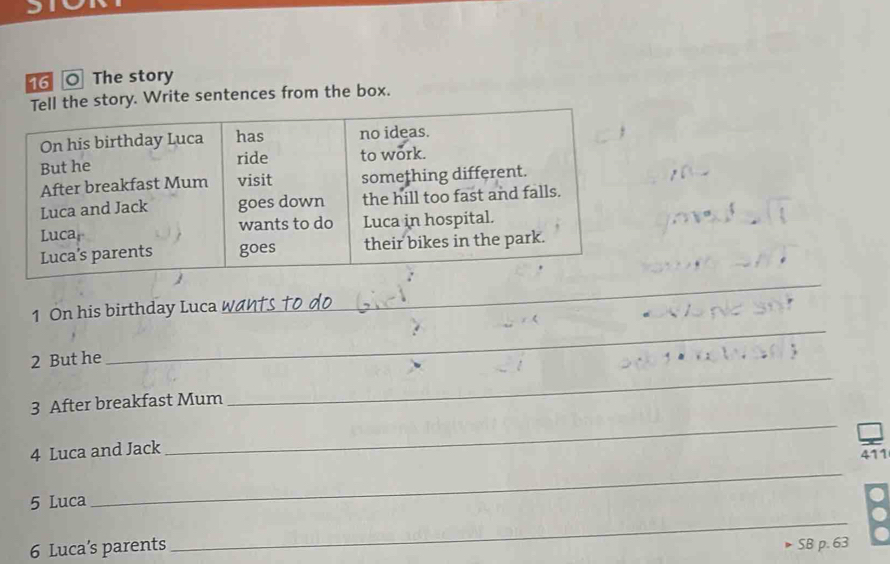 16 The story
Tell the story. Write sentences from the box.
On his birthday Luca has no ideas.
But he ride to work.
After breakfast Mum visit something different.
Luca and Jack goes down the hill too fast and falls.
Luca wants to do Luca in hospital.
Luca's parents goes their bikes in the park.
1 On his birthday Luca wants to do
2 But he
3 After breakfast Mum
4 Luca and Jack
411
5 Luca
6 Luca's parents
▸ SB p. 63